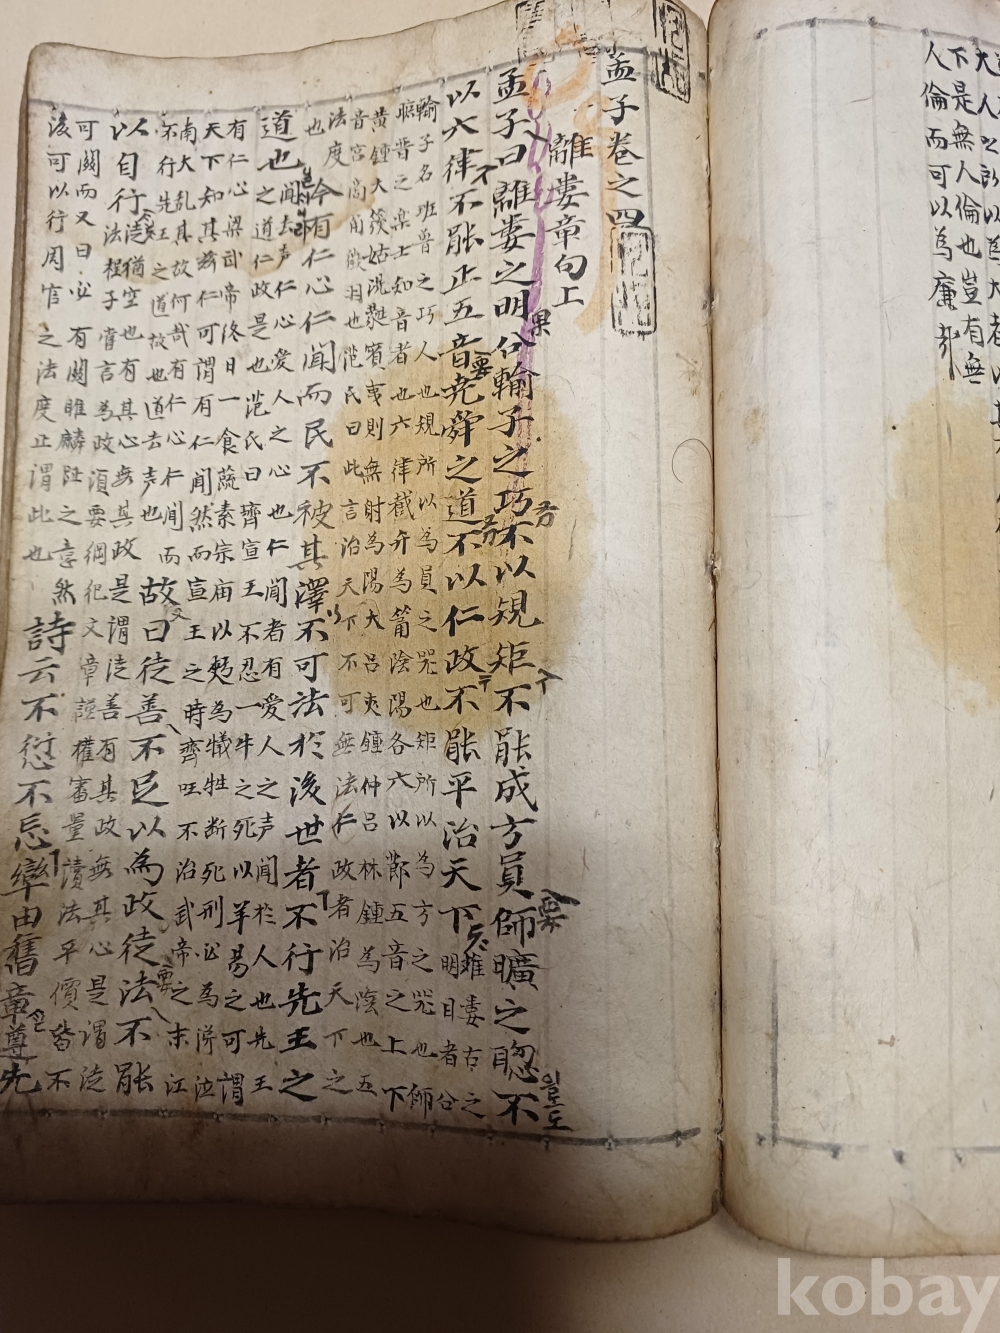 下是無人倫也豈有無
人倫而可以為廉哉
孟子卷之四
離婁章句上
孟子曰離婁之明公輸子之巧不以規矩不能成方員師曠之聰不
以六律不能正五音堯舜之道不以仁政不能平治天下離婁古之
明目者公
輸子名班魯之巧人也規所以為員之器也矩所以為方之器也師
曠晉之樂士知音者也六律截竹為筩陰陽各六以節五音之上下
黃鍾大簇姑洗蕤賓夷則無射為陽大呂夾鍾仲呂林鍾為陰也五
音宮商角徵羽也范氏曰此言治天下不可無法仁政者治天下之
法度
也今有仁心仁聞而民不被其澤不可法於後世者不行先王之
道也聞去声仁心愛人之心也仁聞者有愛人之声聞於人也先王
之道仁政是也范氏曰齊宣王不忍一牛之死以羊易之可謂
有仁心梁武帝終日一食蔬素宗庙以麪為犠牲断死刑必為涕泣
天下知其慈仁可謂有仁聞然而宣王之時齊国不治武帝之末江
南大乱其故何哉有仁心仁聞而
不行先王之道故也道去声也故曰徒善不足以為政徒法不能
以自行徒猶空也有其心無其政是謂徒善有其政無其心是謂徒
法程子嘗言為政須要綱紀文章謹權審量讀法平價皆不
可闕而又曰必有關雎麟趾之意然
後可以行周官之法度正謂此也詩云不愆不忘率由舊章尊先
kobay